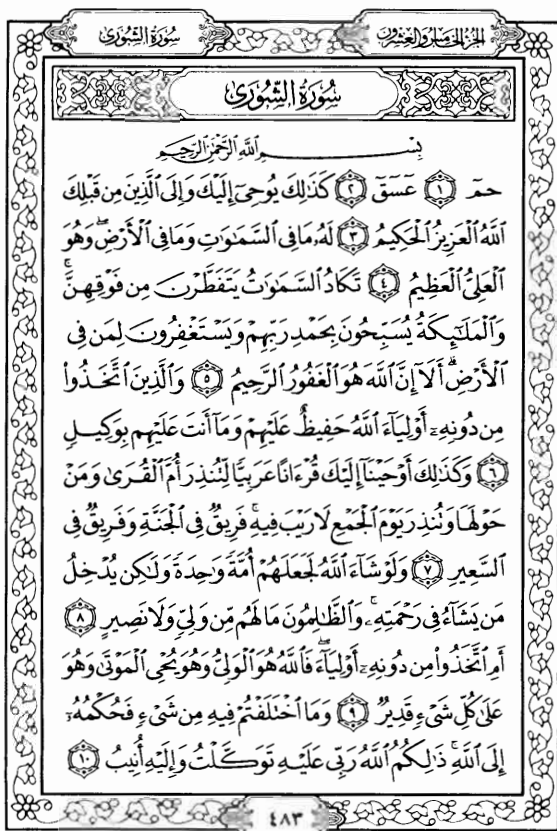 الجزء الخامس والعشرون
سورة الشورى
سُورَةُ الشُّورَىٰ
بِسْمِ اللَّهِ الرَّحْمَٰنِ الرَّحِيمِ
حمٓ ١ عٓسٓقٓ ٢ كَذَٰلِكَ يُوحِىٓ إِلَيْكَ وَإِلَى الَّذِينَ مِن قَبْلِكَ
اللَّهُ الْعَزِيزُ الْحَكِيمُ ٣ لَهُۥ مَا فِى السَّمَٰوَٰتِ وَمَا فِى الْأَرْضِ ۖ وَهُوَ
الْعَلِىُّ الْعَظِيمُ ٤ تَكَادُ السَّمَٰوَٰتُ يَتَفَطَّرْنَ مِن فَوْقِهِنَّ ۚ
وَالْمَلَٰٓئِكَةُ يُسَبِّحُونَ بِحَمْدِ رَبِّهِمْ وَيَسْتَغْفِرُونَ لِمَن فِى
الْأَرْضِ ۗ أَلَآ إِنَّ اللَّهَ هُوَ الْغَفُورُ الرَّحِيمُ ٥ وَالَّذِينَ اتَّخَذُوا۟
مِن دُونِهِۦٓ أَوْلِيَآءَ اللَّهُ حَفِيظٌ عَلَيْهِمْ وَمَآ أَنتَ عَلَيْهِم بِوَكِيلٍ
٦ وَكَذَٰلِكَ أَوْحَيْنَآ إِلَيْكَ قُرْءَانًا عَرَبِيًّا لِّتُنذِرَ أُمَّ الْقُرَىٰ وَمَنْ
حَوْلَهَا وَتُنذِرَ يَوْمَ الْجَمْعِ لَا رَيْبَ فِيهِ ۚ فَرِيقٌ فِى الْجَنَّةِ وَفَرِيقٌ فِى
السَّعِيرِ ٧ وَلَوْ شَآءَ اللَّهُ لَجَعَلَهُمْ أُمَّةً وَٰحِدَةً وَلَٰكِن يُدْخِلُ
مَن يَشَآءُ فِى رَحْمَتِهِۦ ۚ وَالظَّٰلِمُونَ مَا لَهُم مِّن وَلِىٍّ وَلَا نَصِيرٍ ٨
أَمِ اتَّخَذُوا۟ مِن دُونِهِۦٓ أَوْلِيَآءَ ۖ فَاللَّهُ هُوَ الْوَلِىُّ وَهُوَ يُحْىِ الْمَوْتَىٰ وَهُوَ
عَلَىٰ كُلِّ شَىْءٍ قَدِيرٌ ٩ وَمَا اخْتَلَفْتُمْ فِيهِ مِن شَىْءٍ فَحُكْمُهُۥٓ
إِلَى اللَّهِ ۚ ذَٰلِكُمُ اللَّهُ رَبِّى عَلَيْهِ تَوَكَّلْتُ وَإِلَيْهِ أُنِيبُ ١٠
٤٨٣